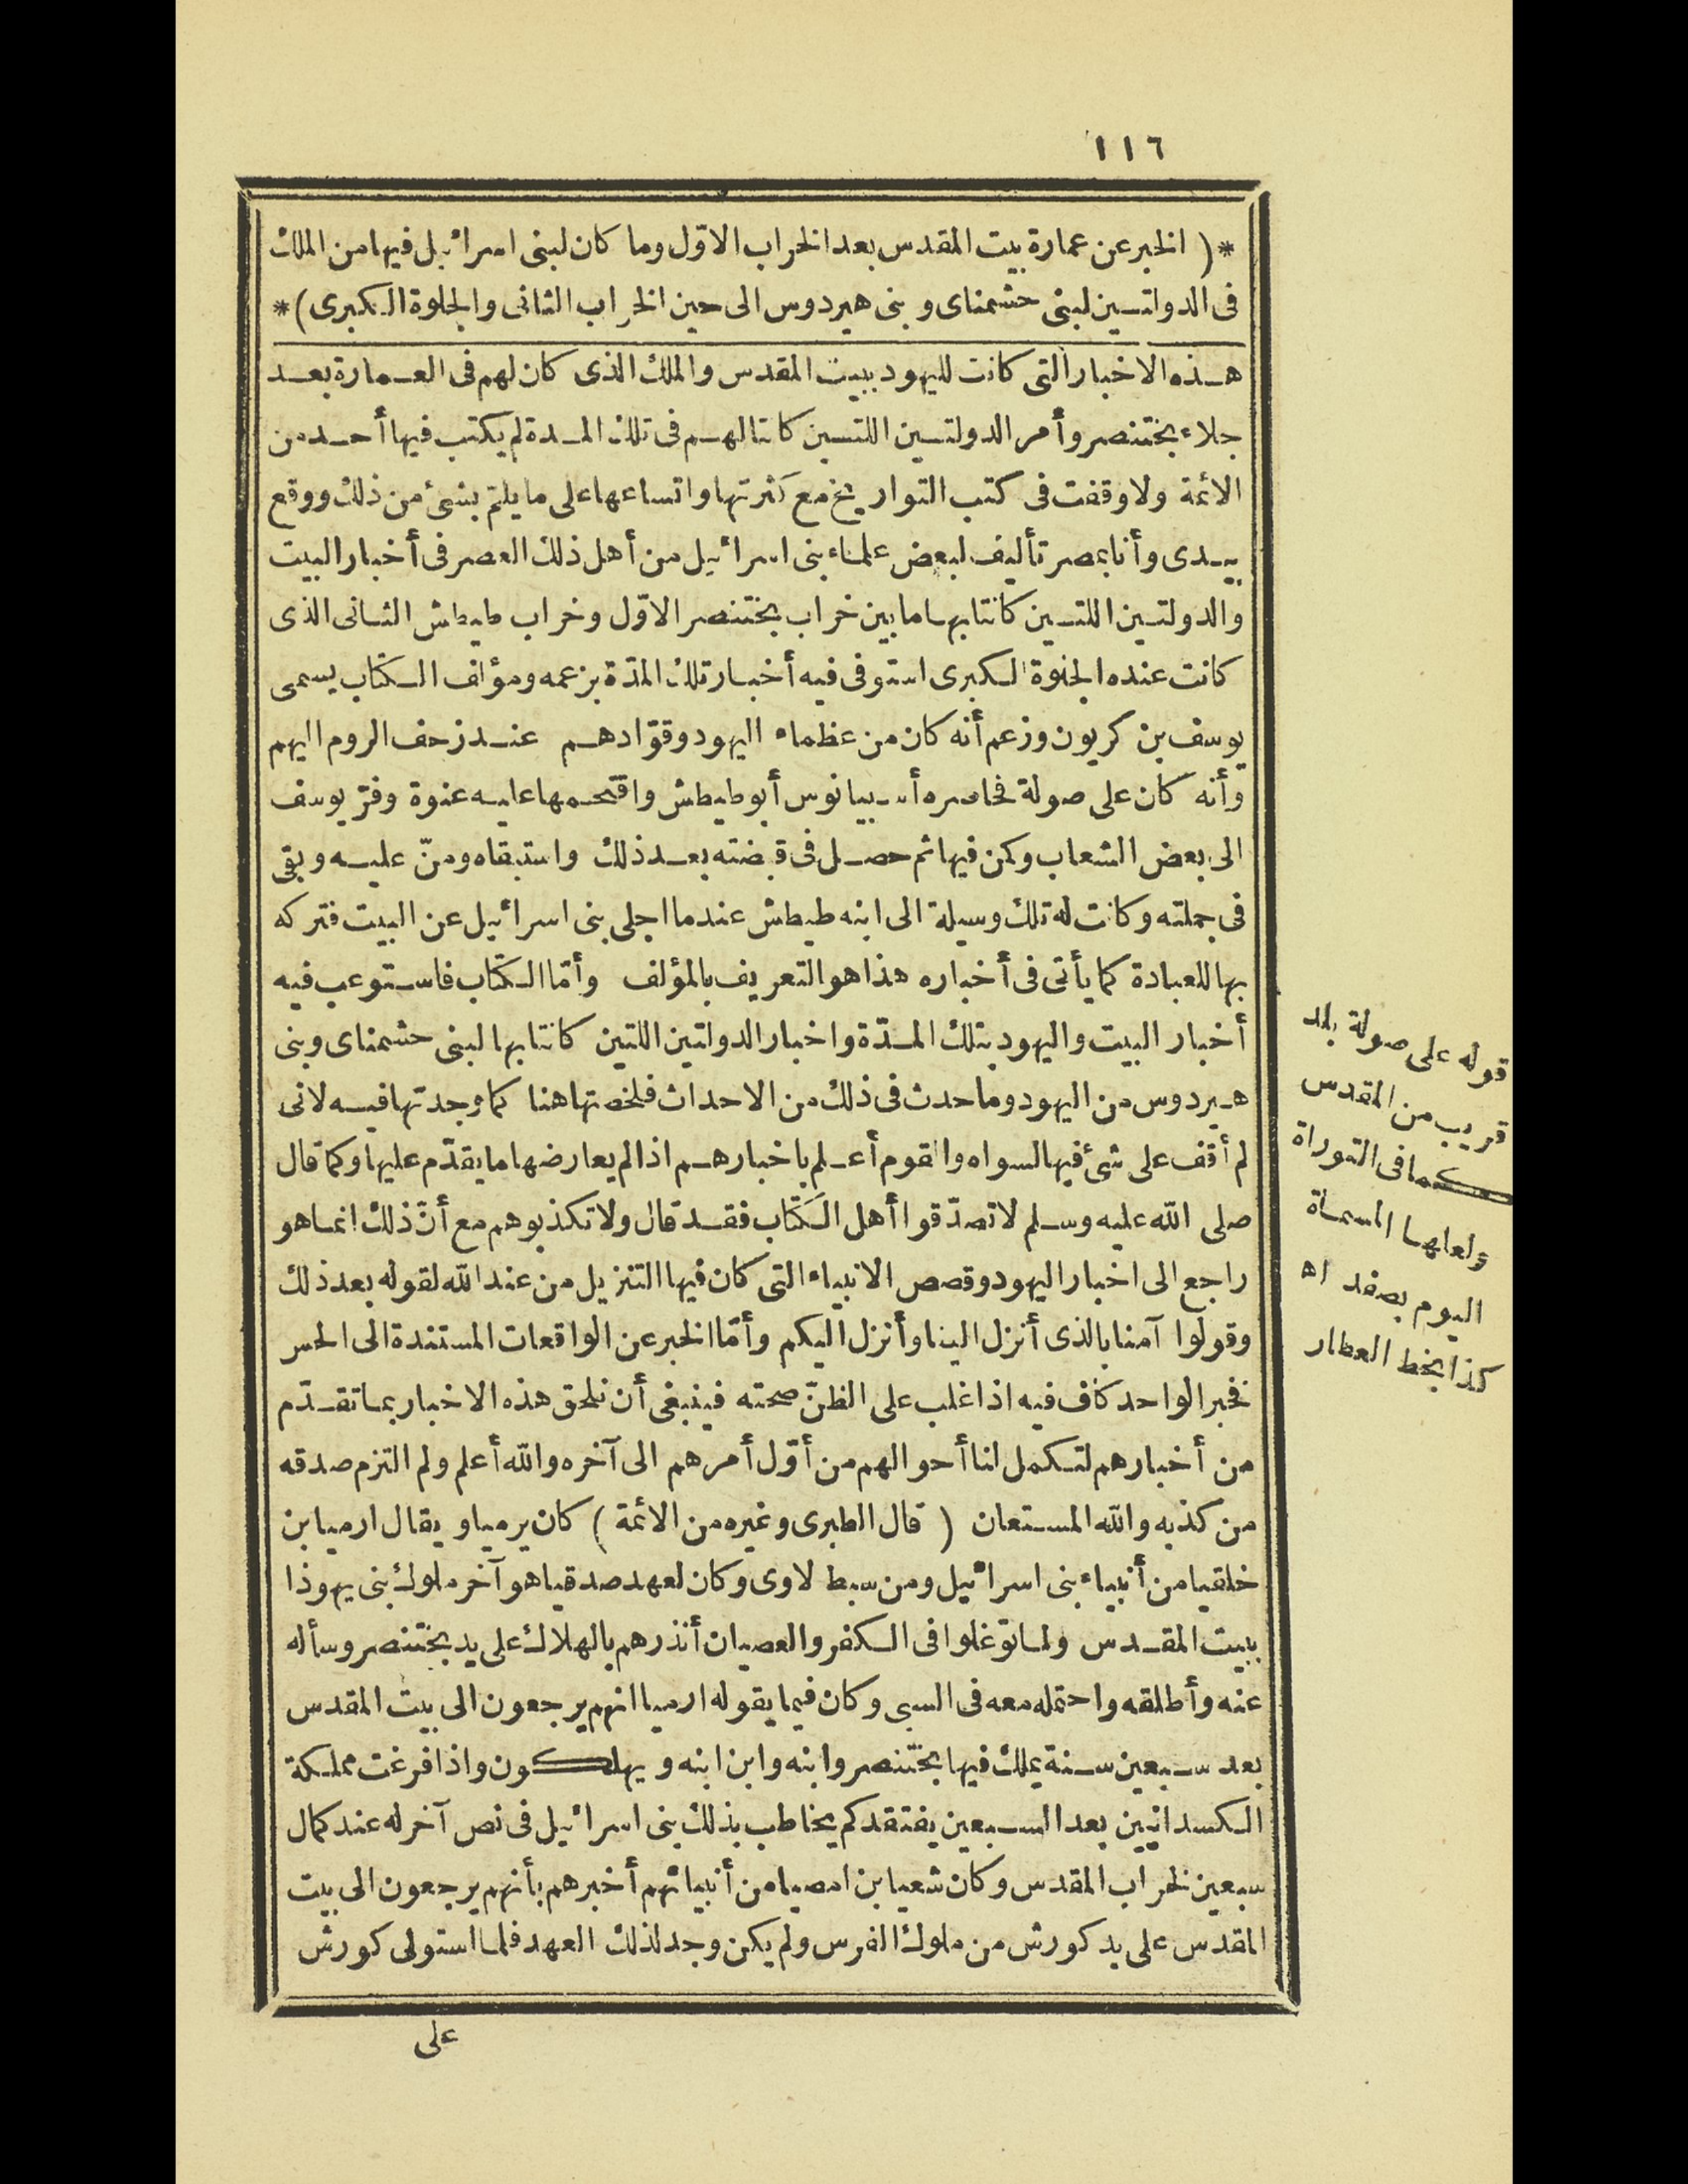 ١١٦
*( الخبر عن عمارة بيت المقدس بعد الخراب الاوّل وما كان لبنى اسرائيل فيها من الملك
فى الدولتين لبنى حشمناى و بنى هيردوس الى حين الخراب الثانى والجلوة الكبرى )*
هذه الاخبار التى كانت لليهود ببيت المقدس والملك الذى كان لهم فى العمارة بعد
جلاء بختنصر وأمر الدولتين اللتين كانتا لهم فى تلك المدة لم يكتب فيها أحد من
الائمة ولا وقفت فى كتب التواريخ مع كثرتها واتساعها على ما يلمّ بشئ من ذلك ووقع
بيدى وأنا بمصر تأليف لبعض علماء بنى اسرائيل من أهل ذلك العصر فى أخبار البيت
والدولتين اللتين كانتا بها ما بين خراب بختنصر الاوّل وخراب طيطش الثانى الذى
كانت عنده الجلوة الكبرى استوفى فيه أخبار تلك المدّة بزعمه ومؤلف الكتاب يسمى
يوسف بن كريون وزعم أنه كان من عظماء اليهود وقوّادهم عند زحف الروم اليهم
وأنه كان على صولة فحاصره أسبيانوس أبو طيطش واقتحمها عليه عنوة وفرّ يوسف
الى بعض الشعاب وكمن فيها ثم حصل فى قبضته بعد ذلك واستبقاه ومنّ عليه وبقى
فى جملته وكانت له تلك وسيلة الى ابنه طيطش عندما اجلى بنى اسرائيل عن البيت فتركه
بها للعبادة كما يأتى فى أخباره هذا هو التعريف بالمؤلف وأمّا الكتاب فاستوعب فيه
أخبار البيت واليهود بتلك المدّة واخبار الدولتين اللتين كانتا بها لبنى حشمناى وبنى
هيردوس من اليهود وما حدث فى ذلك من الاحداث فلخصتها هنا كما وجدتها فيه لانى
لم أقف على شئ فيها لسواه والقوم أعلم باخبارهم اذا لم يعارضها ما يقدّم عليها وكما قال
صلى الله عليه وسلم لا تصدّقوا أهل الكتاب فقد قال ولا تكذبوهم مع أنّ ذلك انما هو
راجع الى اخبار اليهود وقصص الانبياء التى كان فيها التنزيل من عند الله لقوله بعد ذلك
وقولوا آمنا بالذى أنزل الينا وأنزل اليكم وأمّا الخبر عن الواقعات المستندة الى الحس
فخبر الواحد كاف فيه اذا غلب على الظنّ صحته فينبغى أن نلحق هذه الاخبار بما تقدّم
من أخبارهم لتكمل لنا أحوالهم من أوّل أمرهم الى آخره والله أعلم ولم التزم صدقه
من كذبه والله المستعان ( قال الطبرى وغيره من الائمة ) كان يرميا و يقال ارميا بن
خلقيا من أنبياء بنى اسرائيل ومن سبط لاوى وكان لعهد صدقيا هو آخر ملوك بنى يهوذا
ببيت المقدس ولما توغلوا فى الكفر والعصيان أنذرهم بالهلاك على يد بختنصر وسأله
عنه وأطلقه واحتمله معه فى السبى وكان فيما يقوله ارميا انهم يرجعون الى بيت المقدس
بعد سبعين سنة يملك فيها بختنصر وابنه وابن ابنه و يهلكون واذا فرغت مملكة
الكسدانيين بعد السبعين يفتقدكم يخاطب بذلك بنى اسرائيل فى نص آخر له عند كمال
سبعين لخراب المقدس وكان شعيا بن امصيا من أنبيائهم أخبرهم بأنهم يرجعون الى بيت
المقدس على يد كورش من ملوك الفرس ولم يكن وجد لذلك العهد فلما استولى كورش
على
قوله على صولة بلد
قريب من المقدس
كما فى التوراة
ولعلها المسماة
اليوم بصفد اه
كذا بخط العطار